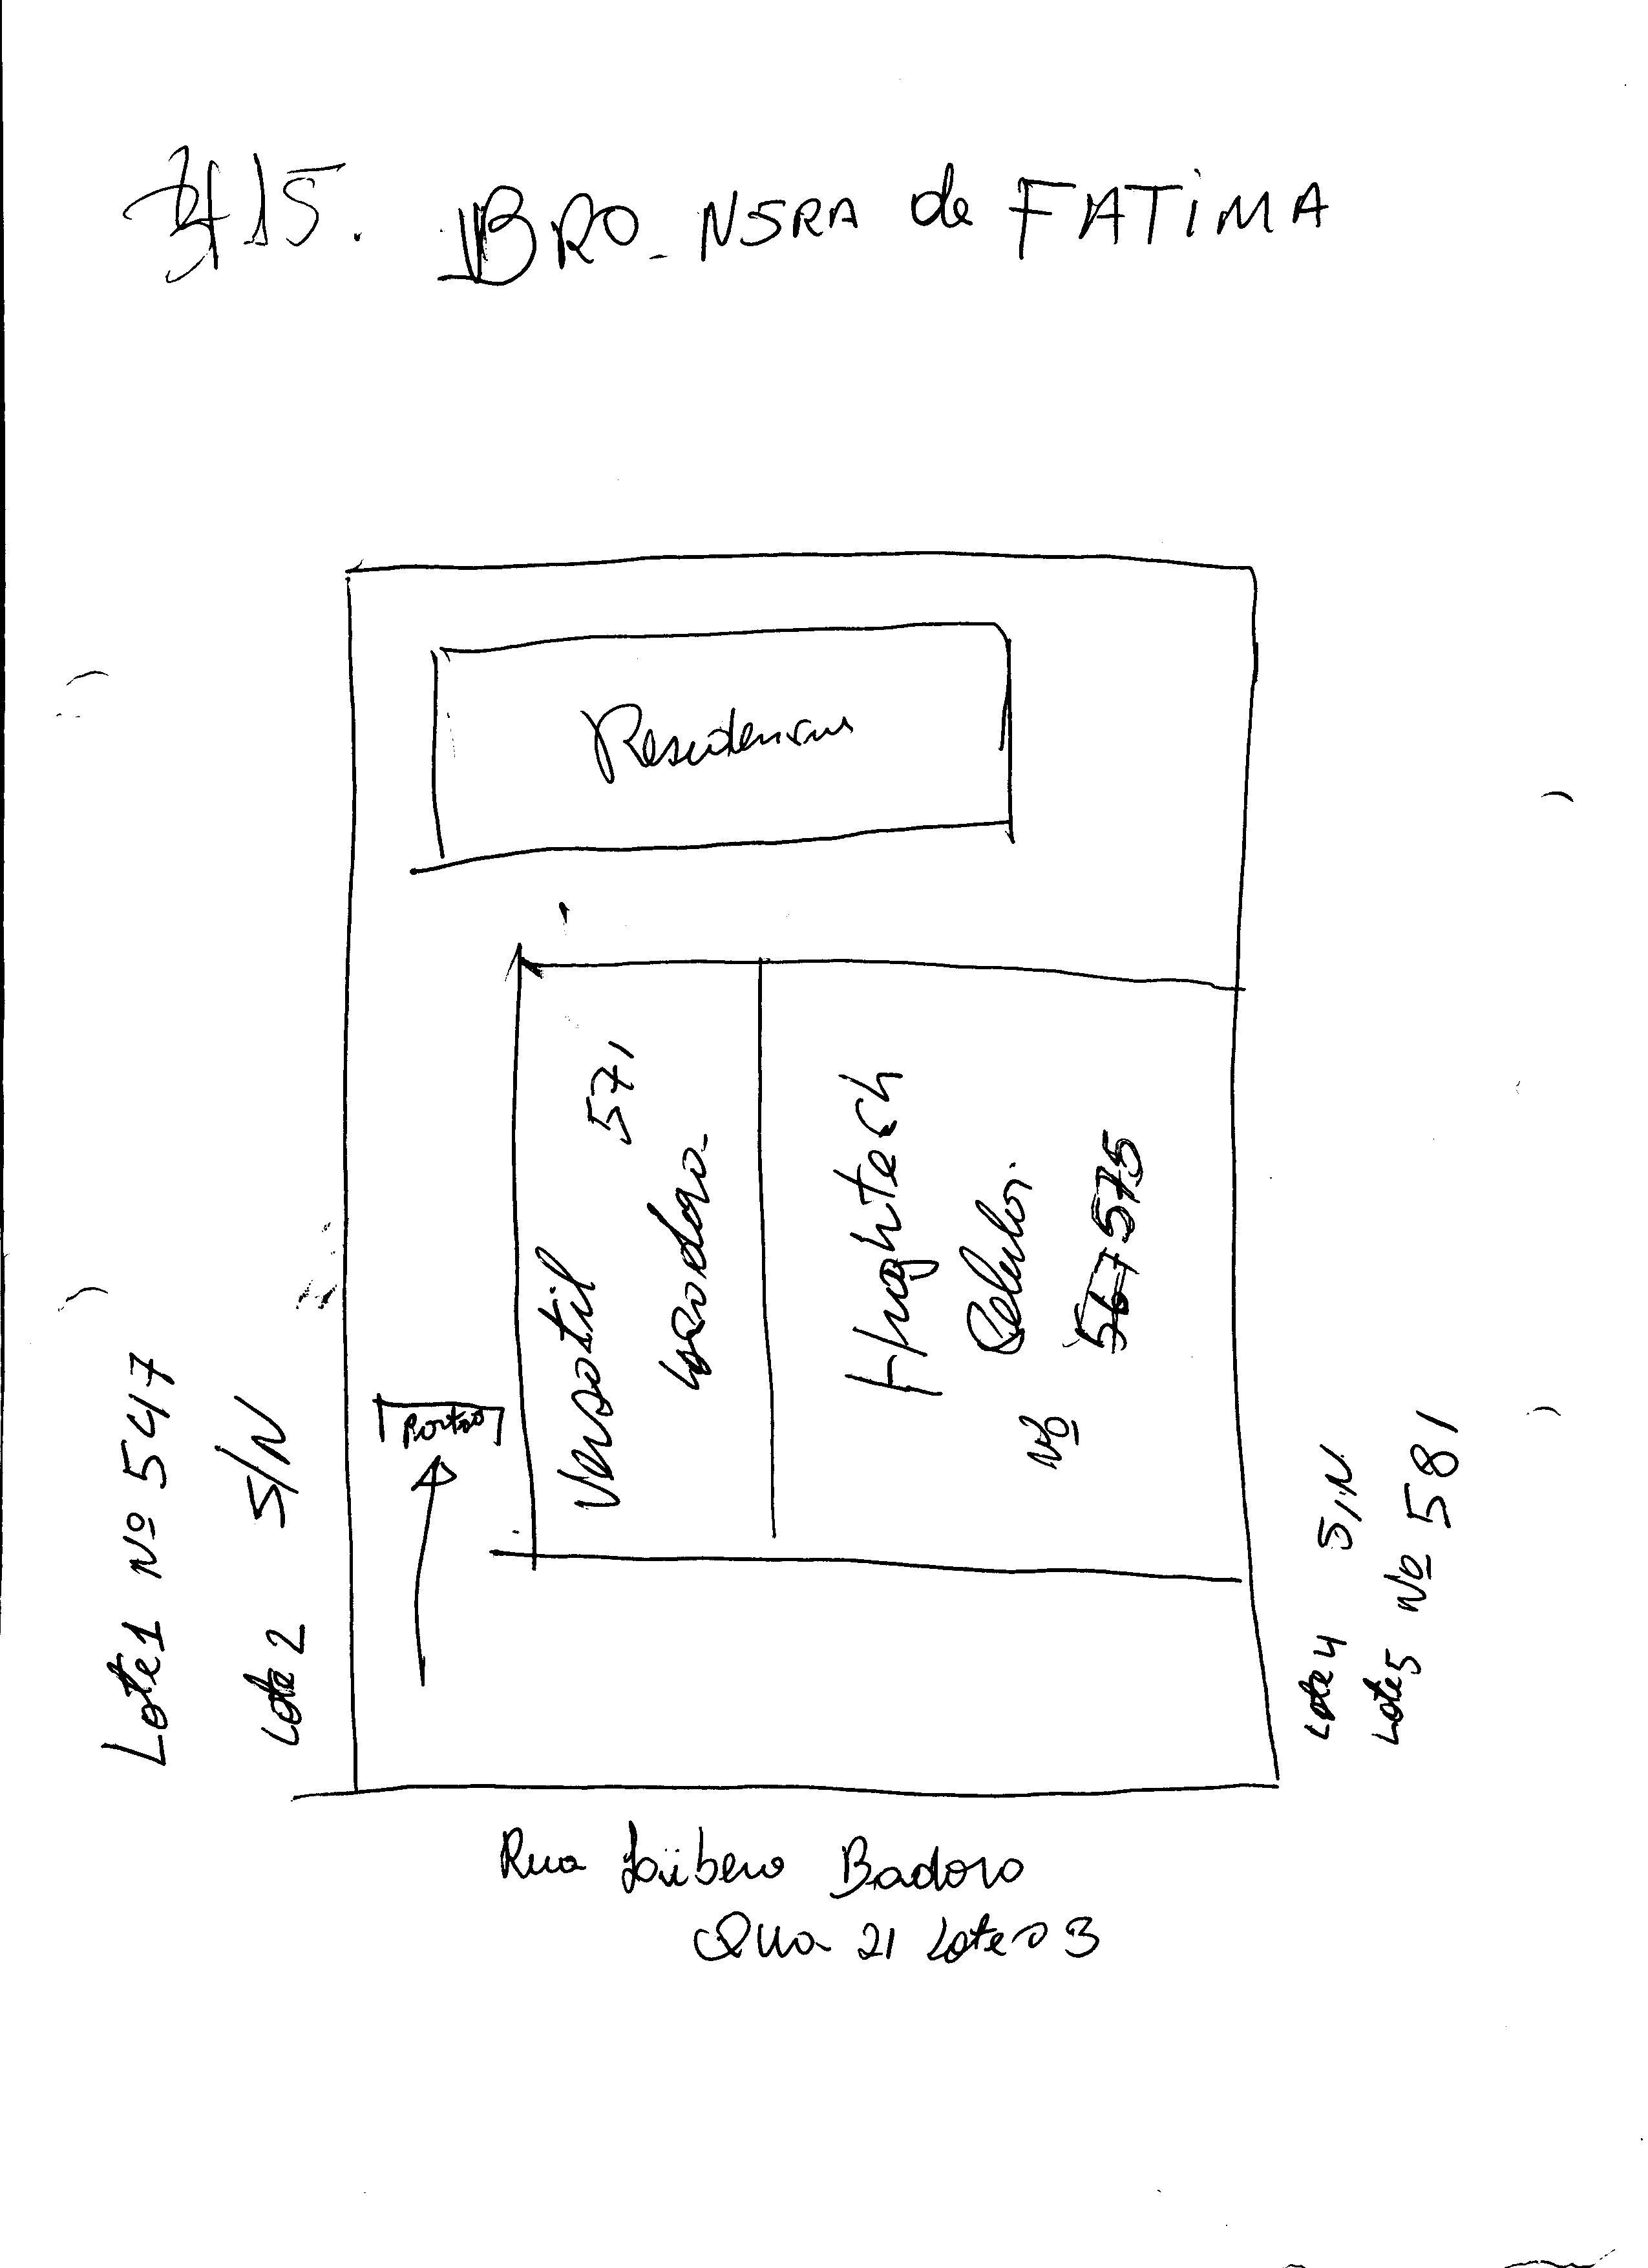 15. BRO. NSRA de FATIMA
Residencias
Versatil 571
Hightech
Celular.
Nº 567 575
Portão
Lote 1 Nº 547
Lote 2 S/N
Lote 4 S/N
Lote 5 Nº 581
Rua Libero Badoro
Qua 21 Lote 03